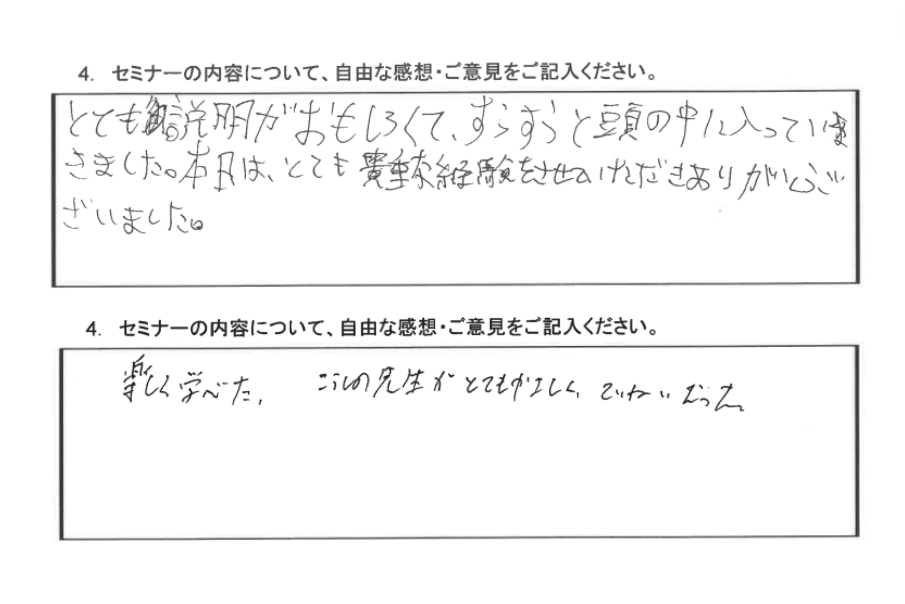 4. セミナーの内容について、自由な感想・ご意見をご記入ください。
とても説明がおもしろくて、すらすらと頭の中に入っていき
きました。本日は、とても貴重な経験をさせていただきありがとうござ
ざいました。
4. セミナーの内容について、自由な感想・ご意見をご記入ください。
楽しく学べた。 こうしの先生がとてもやさしく、ていねいだった。